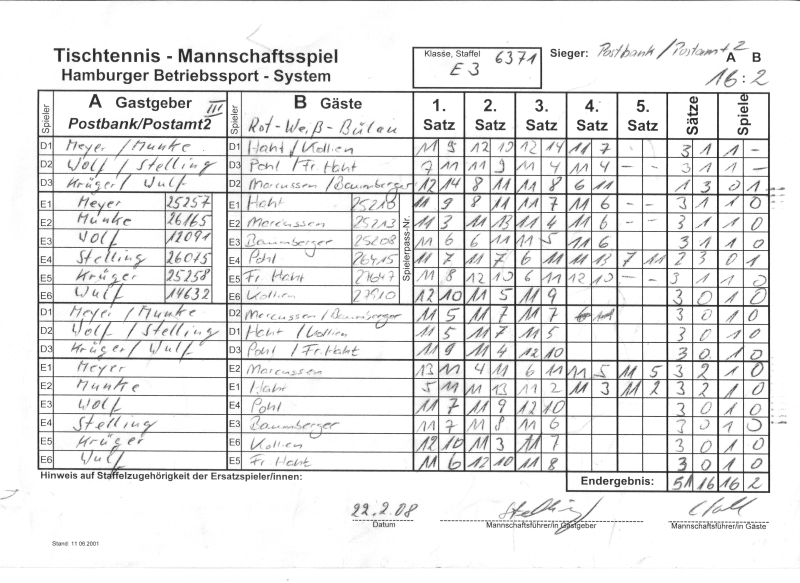 Tischtennis - Mannschaftsspiel
Hamburger Betriebssport - System
Klasse, Staffel
E3 6371
Sieger: Postbank/Postamt 2
A B
16:2
Spieler A Gastgeber III Spieler B Gäste 1. 2. 3. 4. 5. Sätze Spiele
Postbank/Postamt2 Rot-Weiß-Bülau Satz Satz Satz Satz Satz
D1 Meyer / Munke D1 Haht / Kollien 11 9 12 10 12 14 11 7 3 1 1 -
D2 Wolf / Stelling D3 Pohl / Fr. Haht 7 11 11 9 11 4 11 4 - - 3 1 1 -
D3 Krüger / Wulf D2 Marcussen / Baumberger 12 14 8 11 11 8 6 11 1 3 0 1
E1 Meyer 25257 E1 Haht 25210 11 9 8 11 11 7 11 6 - - 3 1 1 0
E2 Munke 26165 E2 Marcussen 25213 11 3 11 13 11 4 11 6 - - 3 1 1 0
E3 Wolf 12091 E3 Baumberger 25208 11 6 6 11 11 5 11 6 3 1 1 0
E4 Stelling 26015 E4 Pohl 26415 11 7 11 7 6 11 11 13 7 11 2 3 0 1
E5 Krüger 25258 E5 Fr. Haht 27647 11 8 12 10 6 11 12 10 - - 3 1 1 0
E6 Wulf 14632 E6 Kollien 27910 12 10 11 5 11 9 3 0 1 0
Spielerpass-Nr.
D1 Meyer / Munke D2 Marcussen / Baumberger 11 5 11 7 11 7 3 0 1 0
D2 Wolf / Stelling D1 Haht / Kollien 11 5 11 7 11 5 3 0 1 0
D3 Krüger / Wulf D3 Pohl / Fr. Haht 11 9 11 4 12 10 3 0 1 0
E1 Meyer E2 Marcussen 13 11 4 11 6 11 11 5 11 5 3 2 1 0
E2 Munke E1 Haht 5 11 11 13 11 2 11 3 11 2 3 2 1 0
E3 Wolf E4 Pohl 11 7 11 9 12 10 3 0 1 0
E4 Stelling E3 Baumberger 11 7 11 8 11 6 3 0 1 0
E5 Krüger E6 Kollien 12 10 11 3 11 7 3 0 1 0
E6 Wulf E5 Fr. Haht 11 6 12 10 11 8 3 0 1 0
Hinweis auf Staffelzugehörigkeit der Ersatzspieler/innen: Endergebnis: 51 16 16 2
22.2.08 Stelling
Datum Mannschaftsführer/in Gastgeber Mannschaftsführer/in Gäste
Stand: 11 06 2001